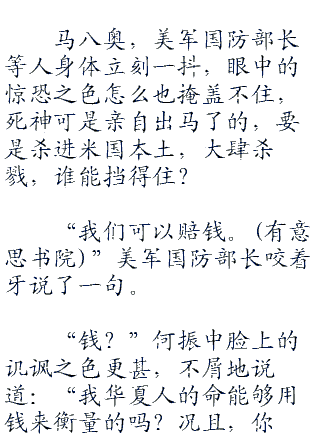 马八奥，美军国防部长
等人身体立刻一抖，眼中的
惊恐之色怎么也掩盖不住，
死神可是亲自出马了的，要
是杀进米国本土，大肆杀
戮，谁能挡得住？
“我们可以赔钱。(有意
思书院)”美军国防部长咬着
牙说了一句。
“钱？”何振中脸上的
讥讽之色更甚，不屑地说
道：“我华夏人的命能够用
钱来衡量的吗？况且，你